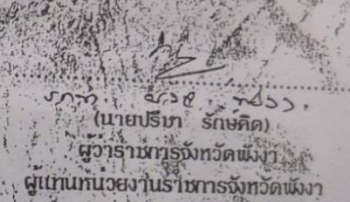 (นายปรีชา รักษคิด)
ผู้ว่าราชการจังหวัดพังงา
ผู้แทนหน่วยงานราชการจังหวัดพังงา